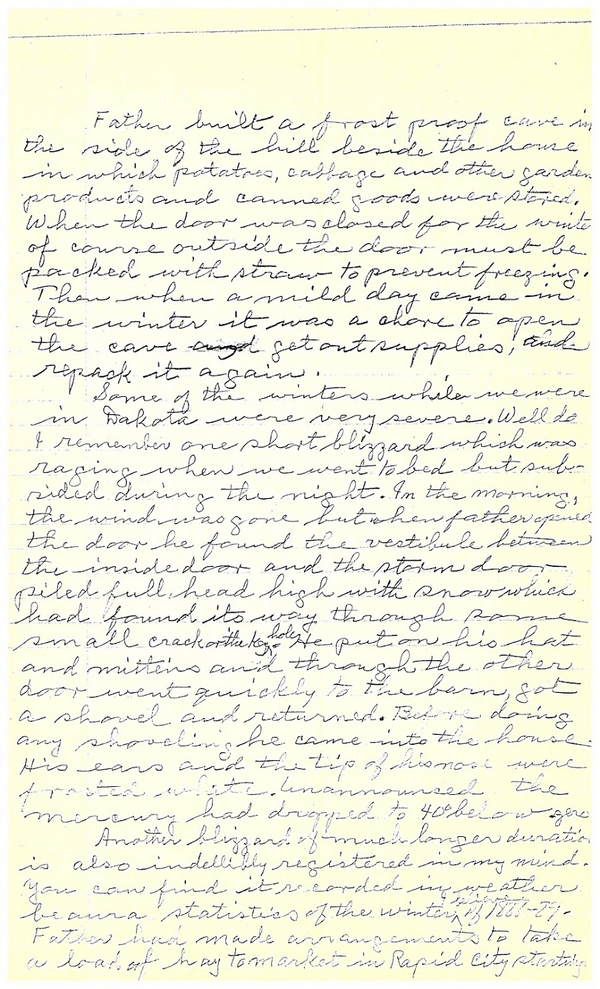 Father built a frost proof cave in
the side of the hill beside the house
in which potatoes, cabbage and other garden
products and canned goods were stored.
When the door was closed for the winte
of course outside the door must be
packed with straw to prevent freezing.
Then when a mild day came in
the winter it was a chore to open
the cave and get out supplies, and
repack it again.
Some of the winters while we were
in Dakota were very severe. Well do
I remember one short blizzard which was
raging when we went to bed but sub-
sided during the night. In the morning,
the wind was gone but when father opened
the door he found the vestibule between
the inside door and the storm door
piled full, head high with snow which
had found its way through some
small crack or the key hole. He put on his hat
and mittens and through the other
door went quickly to the barn, got
a shovel and returned. Before doing
any shoveling he came into the house.
His ears and the tip of his nose were
frosted white. Unannounced the
mercury had dropped to 40° below zero
Another blizzard of much longer duration
is also indellibly registered in my mind.
You can find it recorded in weather
beaura statistics of the winter of 1888-89.
Father had made arrangements to take
a load of hay to market in Rapid City starting